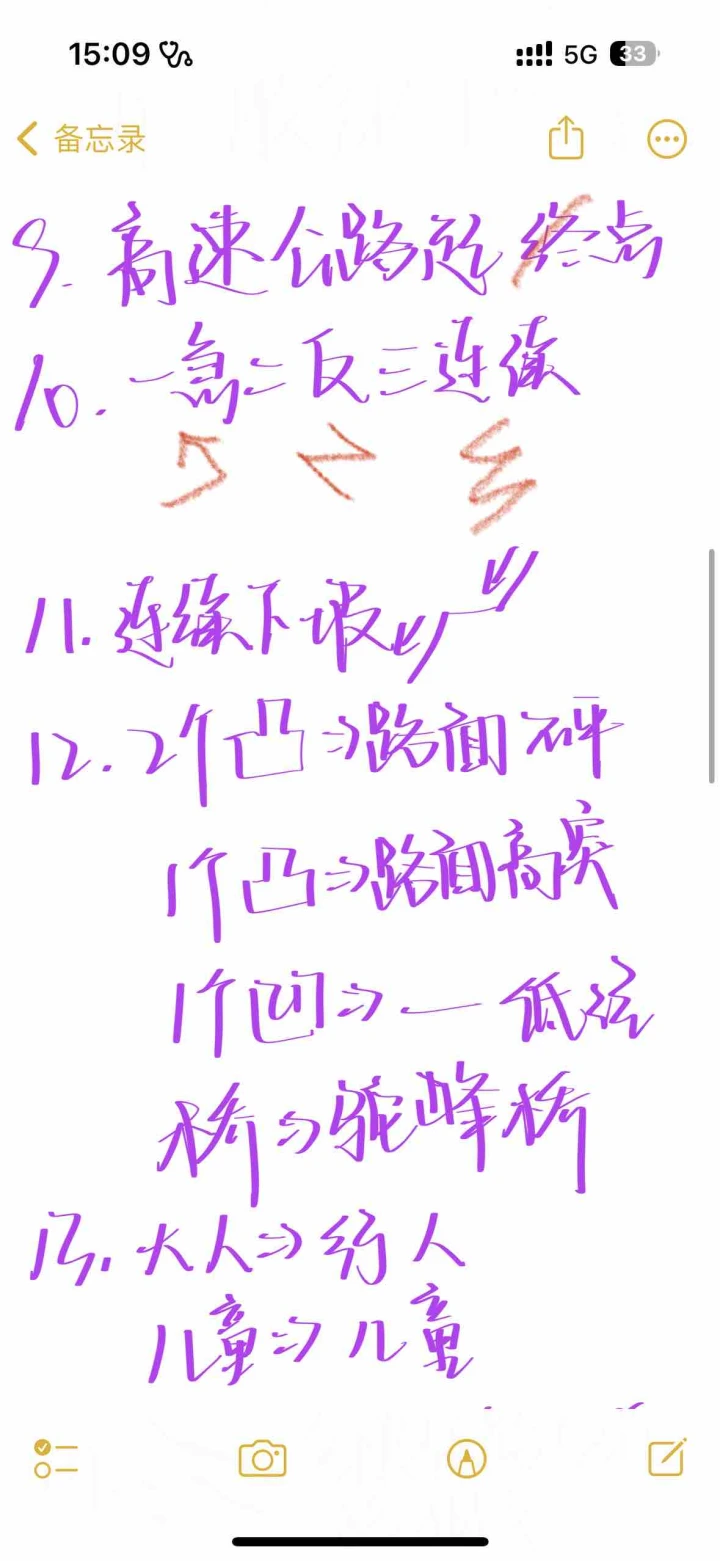 15:09 5G 33
备忘录
9. 高速公路起 终点
10. 一急二反三连续
11. 连续下坡
12. 2个凸⇒路面不平
1个凸⇒路面高突
1个凹⇒ — 低洼
桥⇒驼峰桥
13. 大人⇒行人
儿童⇒儿童